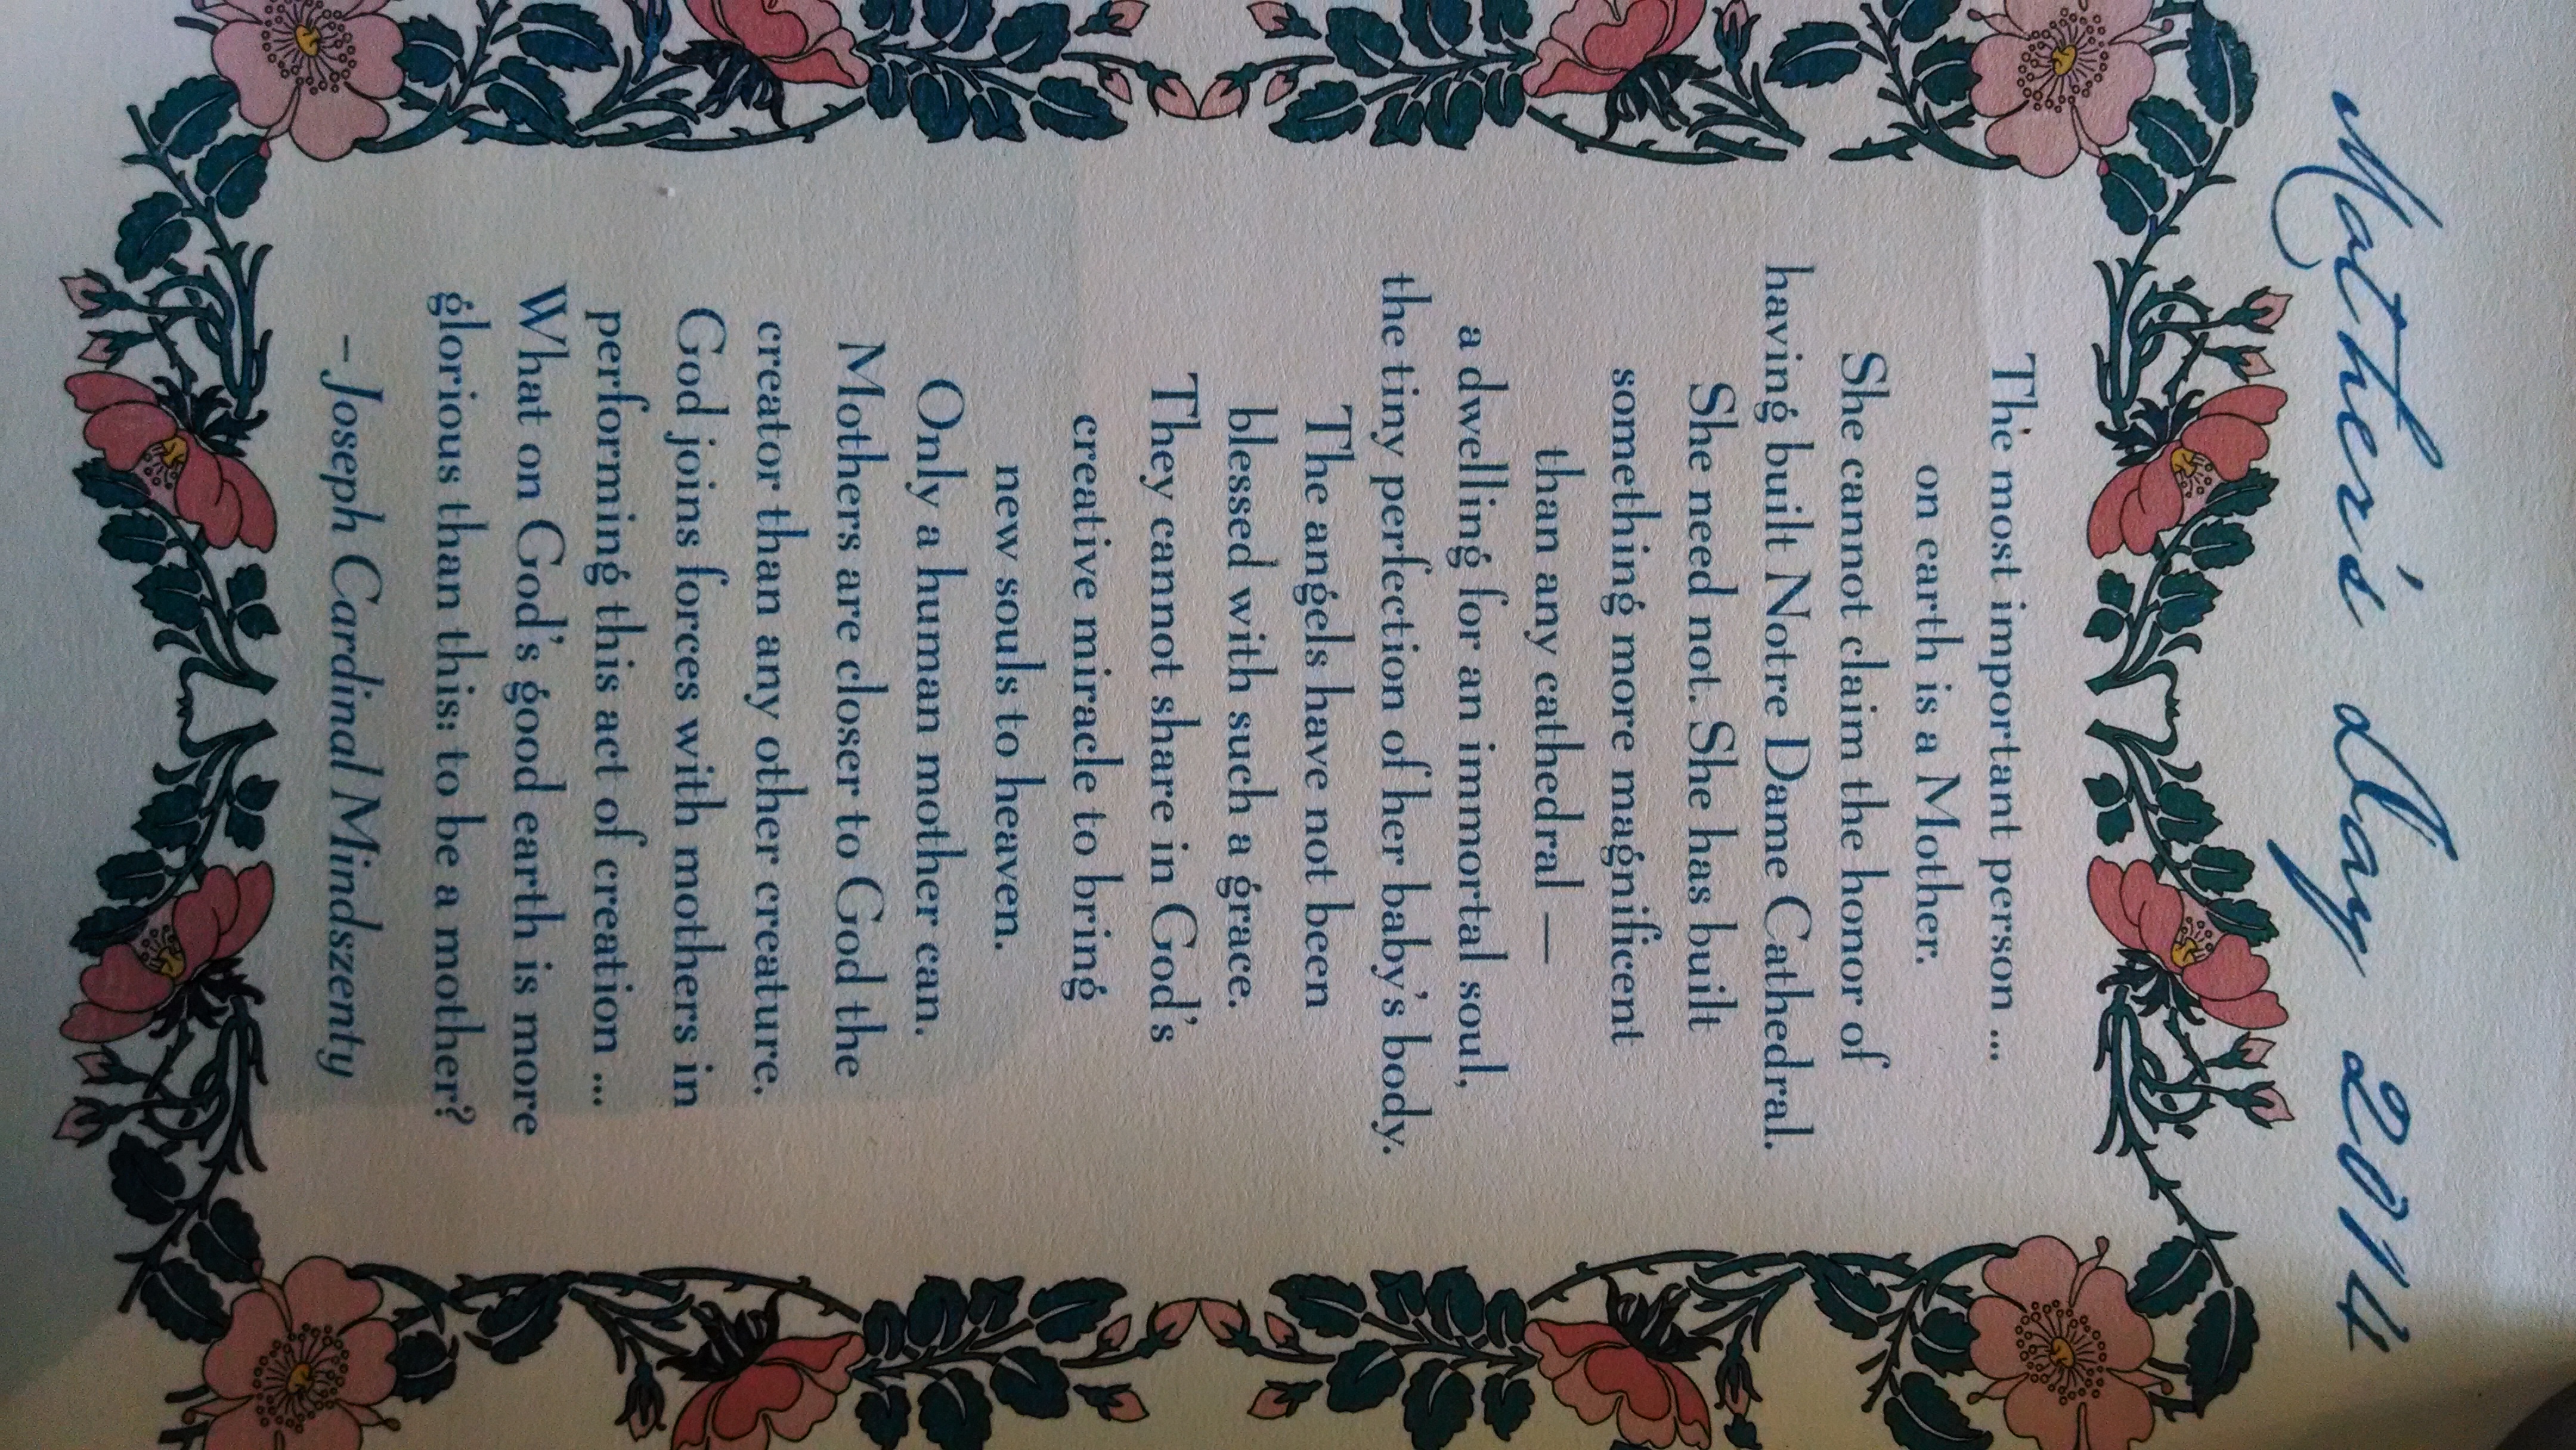 Mother's Day 2014
The most important person ...
on earth is a Mother.
She cannot claim the honor of
having built Notre Dame Cathedral.
She need not. She has built
something more magnificent
than any cathedral —
a dwelling for an immortal soul,
the tiny perfection of her baby's body.
The angels have not been
blessed with such a grace.
They cannot share in God's
creative miracle to bring
new souls to heaven.
Only a human mother can.
Mothers are closer to God the
creator than any other creature.
God joins forces with mothers in
performing this act of creation ...
What on God's good earth is more
glorious than this: to be a mother?
– Joseph Cardinal Mindszenty